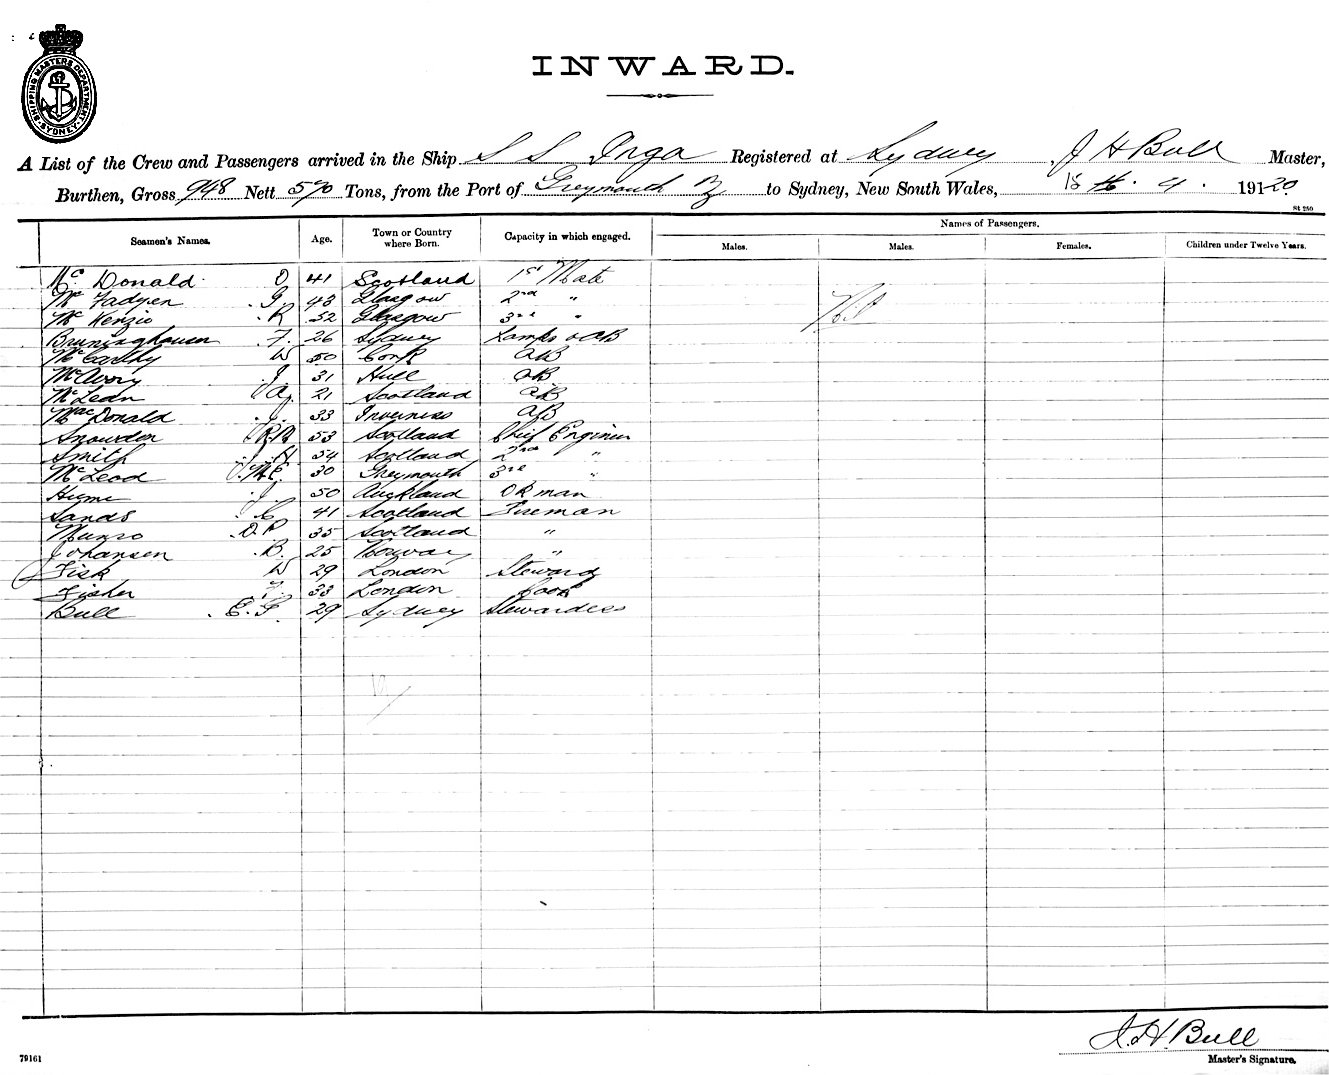 SHIPPING MASTERS DEPARTMENT SYDNEY
INWARD.
A List of the Crew and Passengers arrived in the Ship S S Inga Registered at Sydney J H Bull Master,
Burthen, Gross 948 Nett 570 Tons, from the Port of Greymouth NZ to Sydney, New South Wales, 15 4 1920
St 250
Seamen's Names. Age. Town or Country where Born. Capacity in which engaged. Names of Passengers.
Males. Males. Females. Children under Twelve Years.
Mc Donald D 41 Scotland 1st Mate
Mc Fadyen G 43 Glasgow 2nd "
Nil
Mc Kenzie R 52 Glasgow 3rd "
Bruninghausen F. 26 Sydney Lamps & AB
McCarthy W 50 Cork AB
McAvoy J 31 Hull AB
McLean J A 21 Scotland AB
MacDonald J. 33 Inverness AB
Snowdon 53 Scotland Chief Engineer
Smith J H 54 Scotland 2nd "
McLeod 30 Greymouth 3rd "
Hume J. 50 Auckland Dkman
Sands C 41 Scotland Fireman
Munro D P 35 Scotland "
Johansen B. 25 Norway "
Fisk W 29 London Steward
Fisher F. 33 London Cook
Bull E. F. 29 Sydney Stewardess
J. H. Bull
Master's Signature.
79161